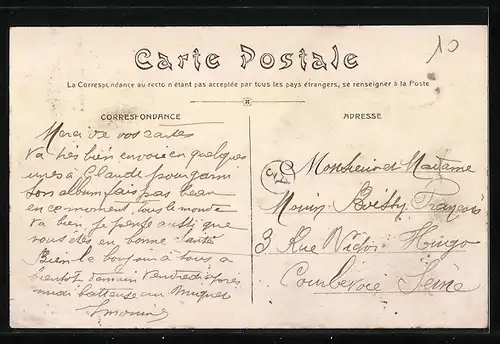 Carte Postale
La Correspondance au recto n'étant pas acceptée par tous les pays étrangers, se renseigner à la Poste
CORRESPONDANCE
Merci de vos cartes
va très bien envoie en quelques
unes à Claude pour garnir
son album fais pas beau
en ce moment, tous le monde
va bien, je pense aussi que
vous êtes en bonne santé
Bien le bonjour à tous a
bientôt demain vendredi après
midi batteuse au
ADRESSE
Monsieur et Madame
Boissy François
3 Rue Victor Hugo
Courbevoie Seine
10